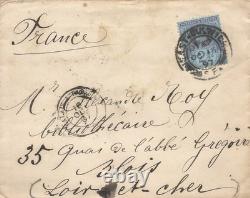 France
Mr Alexandre Roy
bibliothécaire
35 Quai de l'abbé Grégoire
Blois
(Loir-et-cher)